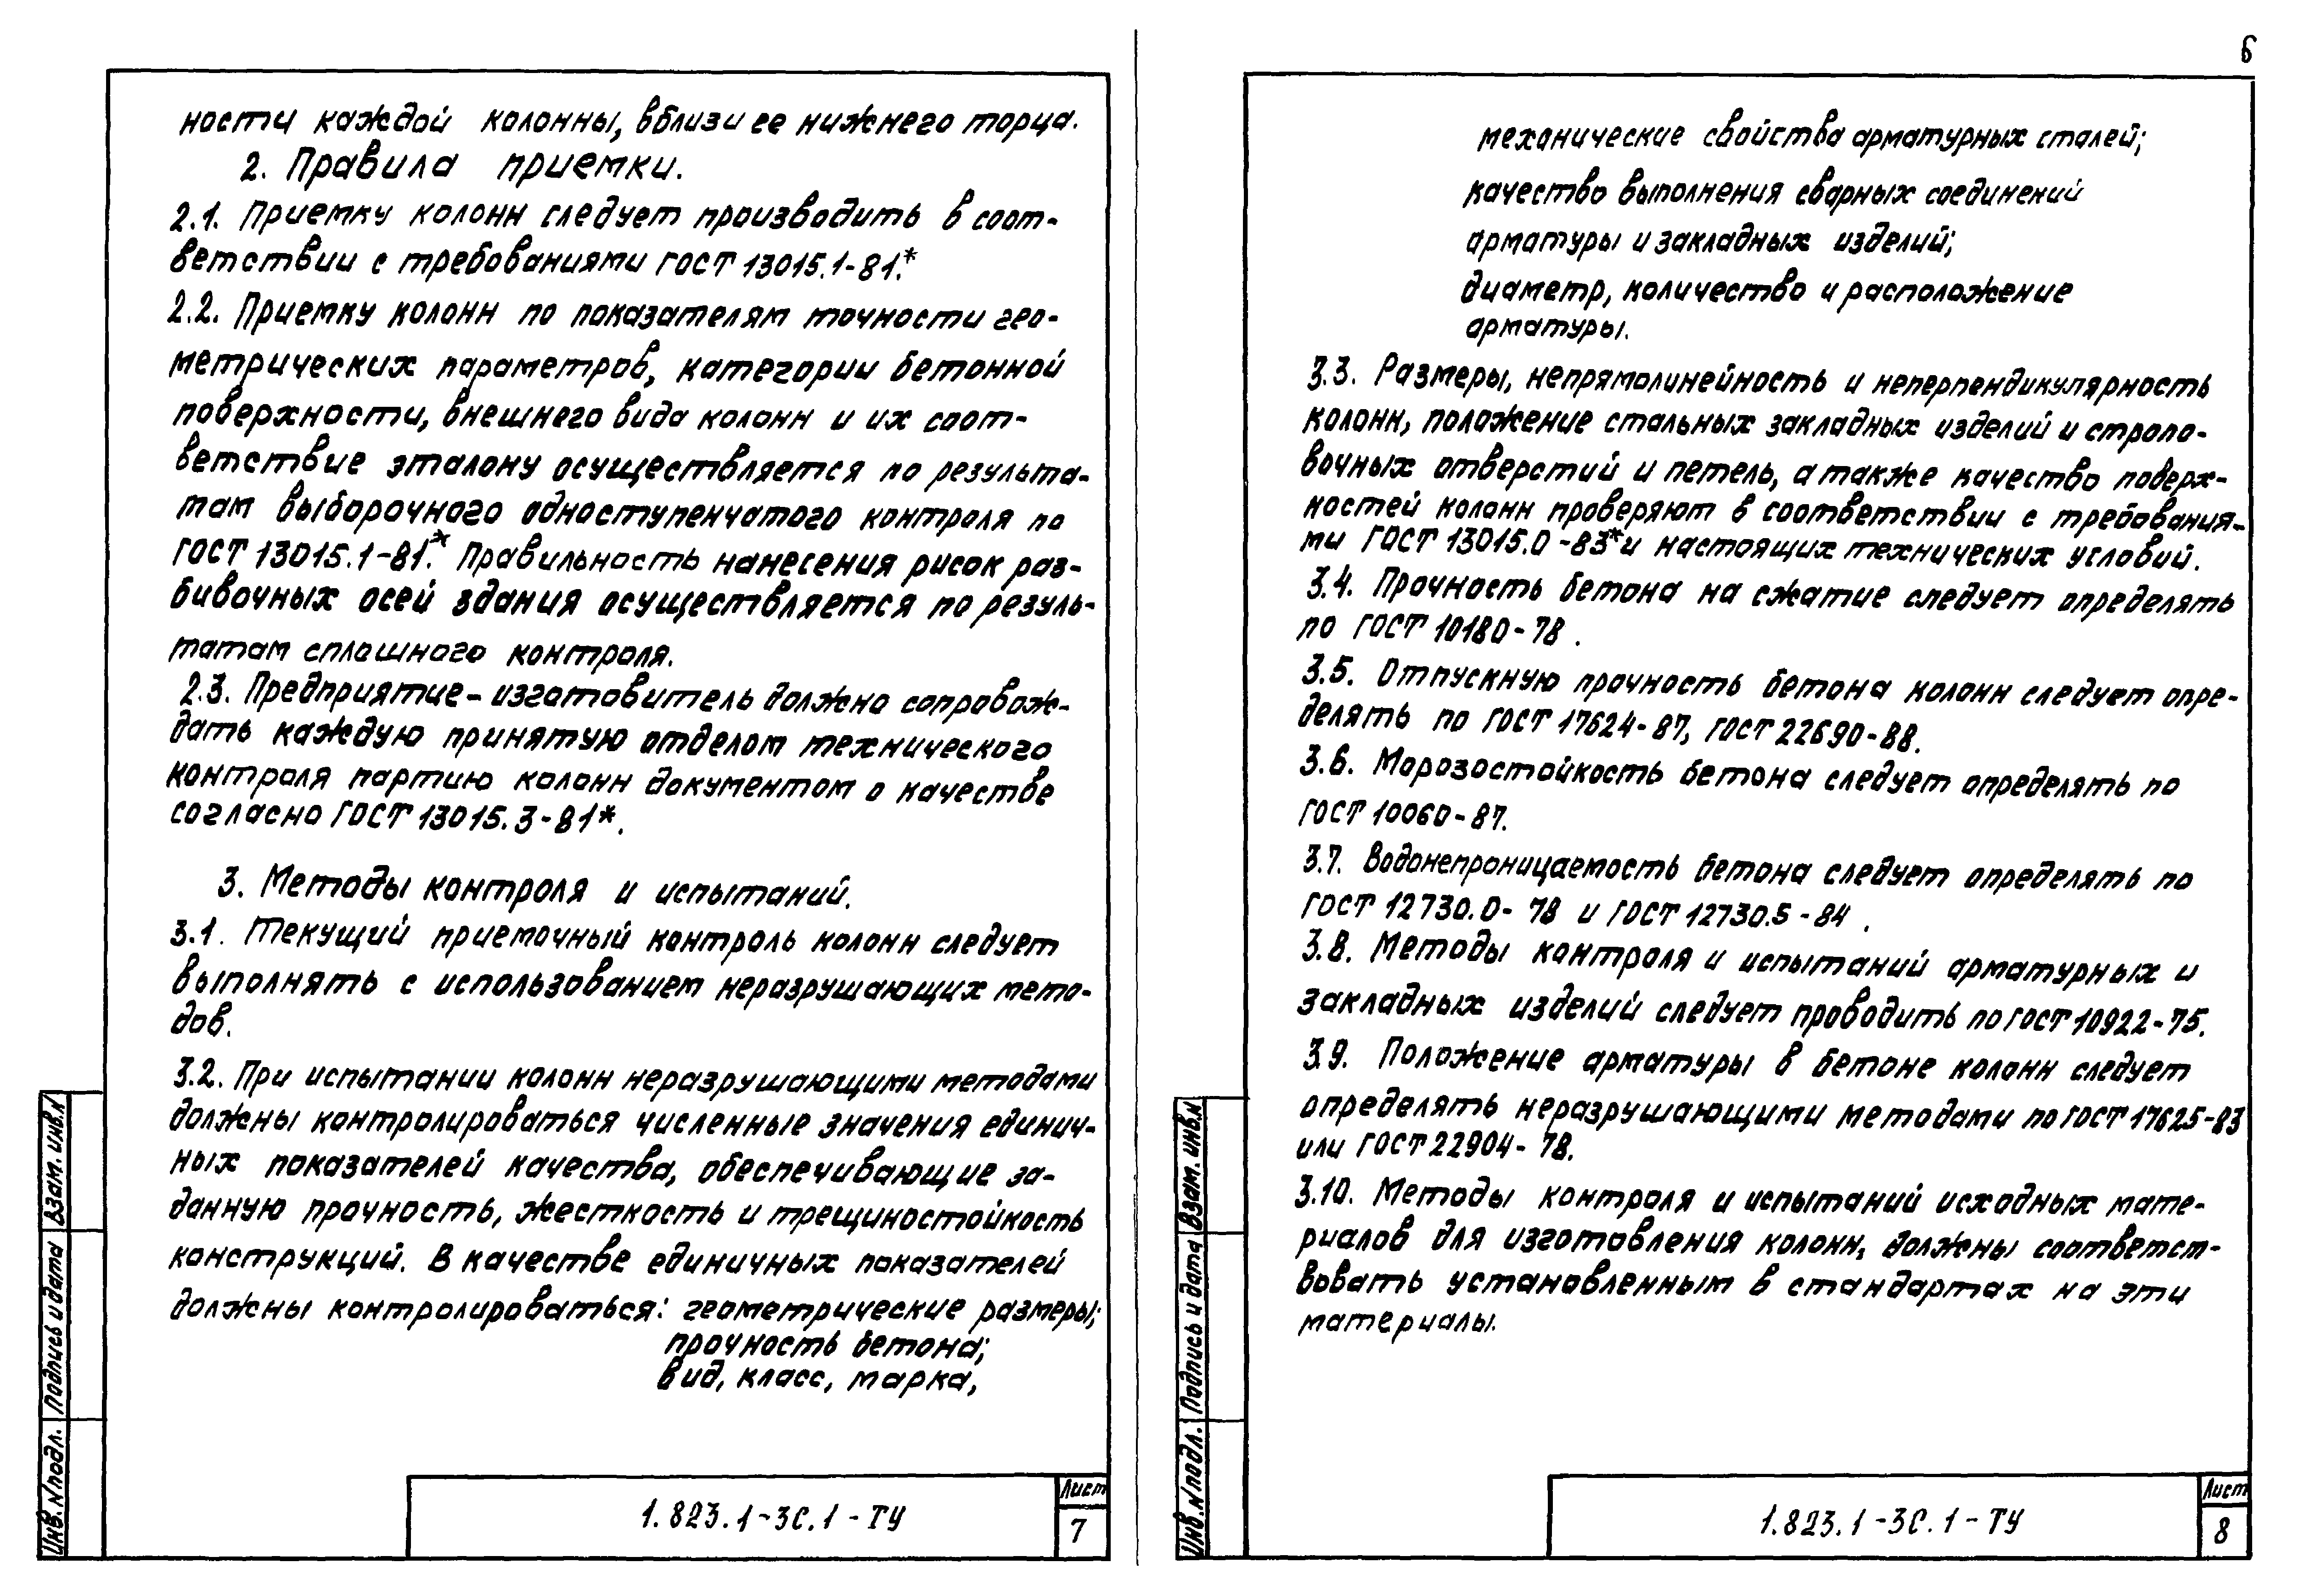 6
ности каждой колонны, вблизи ее нижнего торца.
2. Правила приемки.
2.1. Приемку колонн следует производить в соот-
ветствии с требованиями ГОСТ 13015.1-81.*
2.2. Приемку колонн по показателям точности гео-
метрических параметров, категории бетонной
поверхности, внешнего вида колонн и их соот-
ветствие эталону осуществляется по результа-
там выборочного одноступенчатого контроля по
ГОСТ 13015.1-81.* Правильность нанесения рисок раз-
бивочных осей здания осуществляется по резуль-
татам сплошного контроля.
2.3. Предприятие-изготовитель должно сопровож-
дать каждую принятую отделом технического
контроля партию колонн документом о качестве
согласно ГОСТ 13015.3-81*.
3. Методы контроля и испытаний.
3.1. Текущий приемочный контроль колонн следует
выполнять с использованием неразрушающих мето-
дов.
3.2. При испытании колонн неразрушающими методами
должны контролироваться численные значения единич-
ных показателей качества, обеспечивающие за-
данную прочность, жесткость и трещиностойкость
конструкций. В качестве единичных показателей
должны контролироваться: геометрические размеры;
прочность бетона;
вид, класс, марка,
Инв. N подл.
Подпись и дата
Взам. инв. N
1.823.1-3С.1-ТУ
Лист
7
механические свойства арматурных сталей;
качество выполнения сварных соединений
арматуры и закладных изделий;
диаметр, количество и расположение
арматуры.
3.3. Размеры, непрямолинейность и неперпендикулярность
колонн, положение стальных закладных изделий и стропо-
вочных отверстий и петель, а также качество поверх-
ностей колонн проверяют в соответствии с требования-
ми ГОСТ 13015.0-83* и настоящих технических условий.
3.4. Прочность бетона на сжатие следует определять
по ГОСТ 10180-78.
3.5. Отпускную прочность бетона колонн следует опре-
делять по ГОСТ 17624-87, ГОСТ 22690-88.
3.6. Морозостойкость бетона следует определять по
ГОСТ 10060-87.
3.7. Водонепроницаемость бетона следует определять по
ГОСТ 12730.0-78 и ГОСТ 12730.5-84.
3.8. Методы контроля и испытаний арматурных и
закладных изделий следует проводить по ГОСТ 10922-75.
3.9. Положение арматуры в бетоне колонн следует
определять неразрушающими методами по ГОСТ 17625-83
или ГОСТ 22904-78.
3.10. Методы контроля и испытаний исходных мате-
риалов для изготовления колонн, должны соответст-
вовать установленным в стандартах на эти
материалы.
Инв. N подл.
Подпись и дата
Взам. инв. N
1.823.1-3С.1-ТУ
Лист
8